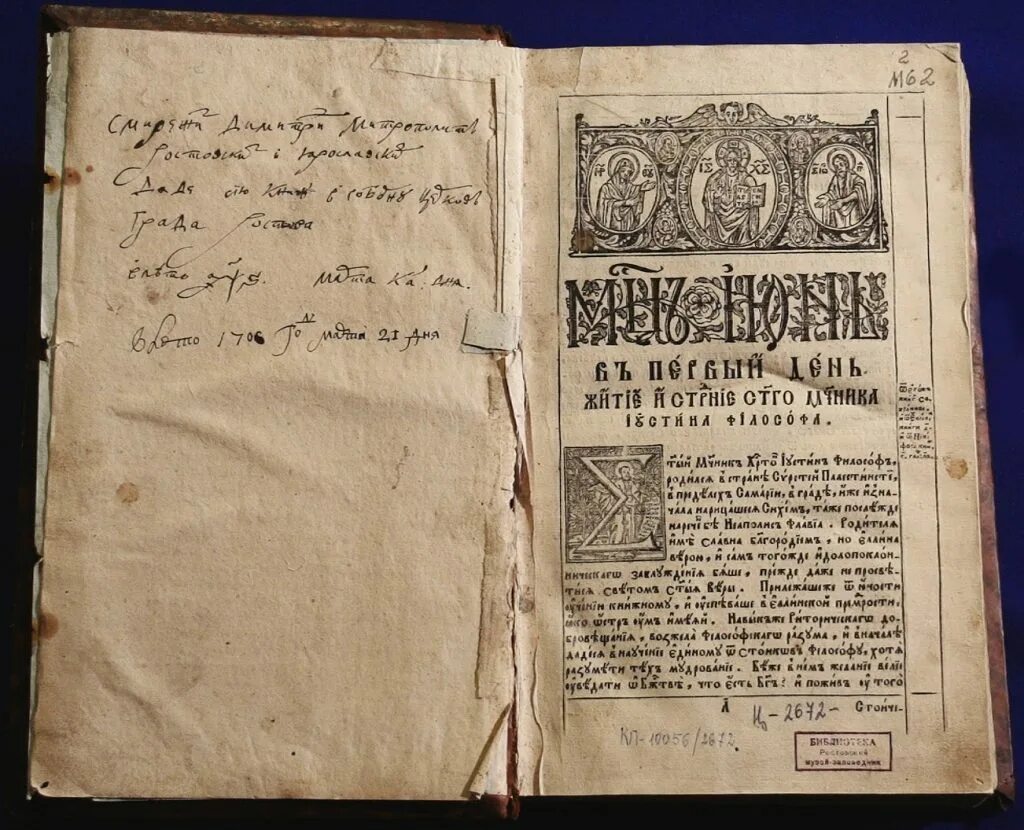 Смирены Димитрій Митрополитъ
Ростовски і Ярославски
Даде сію книгу в соборную церковь
Града Ростова
марта ка дня.
В лето 1706 го марта 21 дня
2
М62
ІС ХС
МЦЪ ІЮНЬ
ВЪ ПЕРВЫЙ ДЕНЬ.
ЖИТІЕ И СТРАНІЕ СТГО МЧНИКА
ІУСТИНА ФІЛОСОФА.
Стый Мчникъ Хртовъ Іустинъ Філософъ,
родился в странѣ Сѵрстей Палестинстѣ,
в предѣлехъ Самаріи, в градѣ, иже изна-
чала нарицашеся Сихемъ, таже послѣжде
нареченъ бѣ Неаполисъ Флавіа. Родителя
имѣ славна блгородіемъ, но еллина
вѣрою, и самъ тогожде идолопоклон-
ническагѡ заблужденія бяше, прежде даже не просвѣ-
тися свѣтомъ стыя вѣры. Прилежашеже ѿ юности
оученію книжному, и оуспѣваше в еллинской премрости,
ꙗко остръ оумъ имѣяй. Навыкъже Риторическагѡ до-
бровѣщанія, возжела Філософскагѡ разума, и вначалѣ
дадеся в наученіе единому ѿ Стоиковъ Філософу, хотя
разумѣти тѣхъ мудрованіе. Бѣже в немъ желаніе веліе
оувѣдати ѡ Бжтвѣ, что есть Бгъ: и поживъ оу того
А
Стоиче-
Ц-2672-
КП-10056/2672
БИБЛИОТЕКА
Ростовский
музей-заповедник